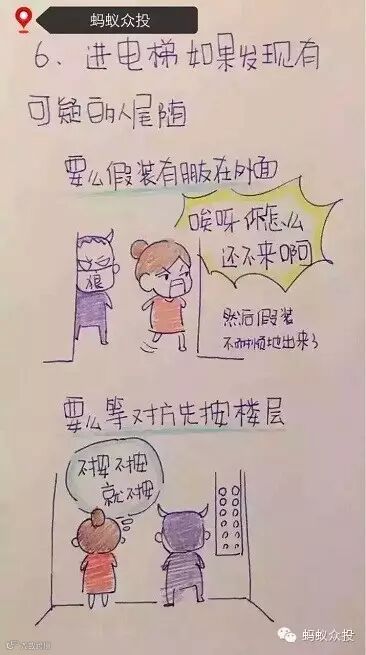 蚂蚁众投
6、进电梯如果发现有
可疑的人尾随
要么假装有朋友在外面
唉呀你怎么
还不来啊
狼
然后假装
不耐烦地出来了
要么等对方先按楼层
不按不按
就不按
蚂蚁众投